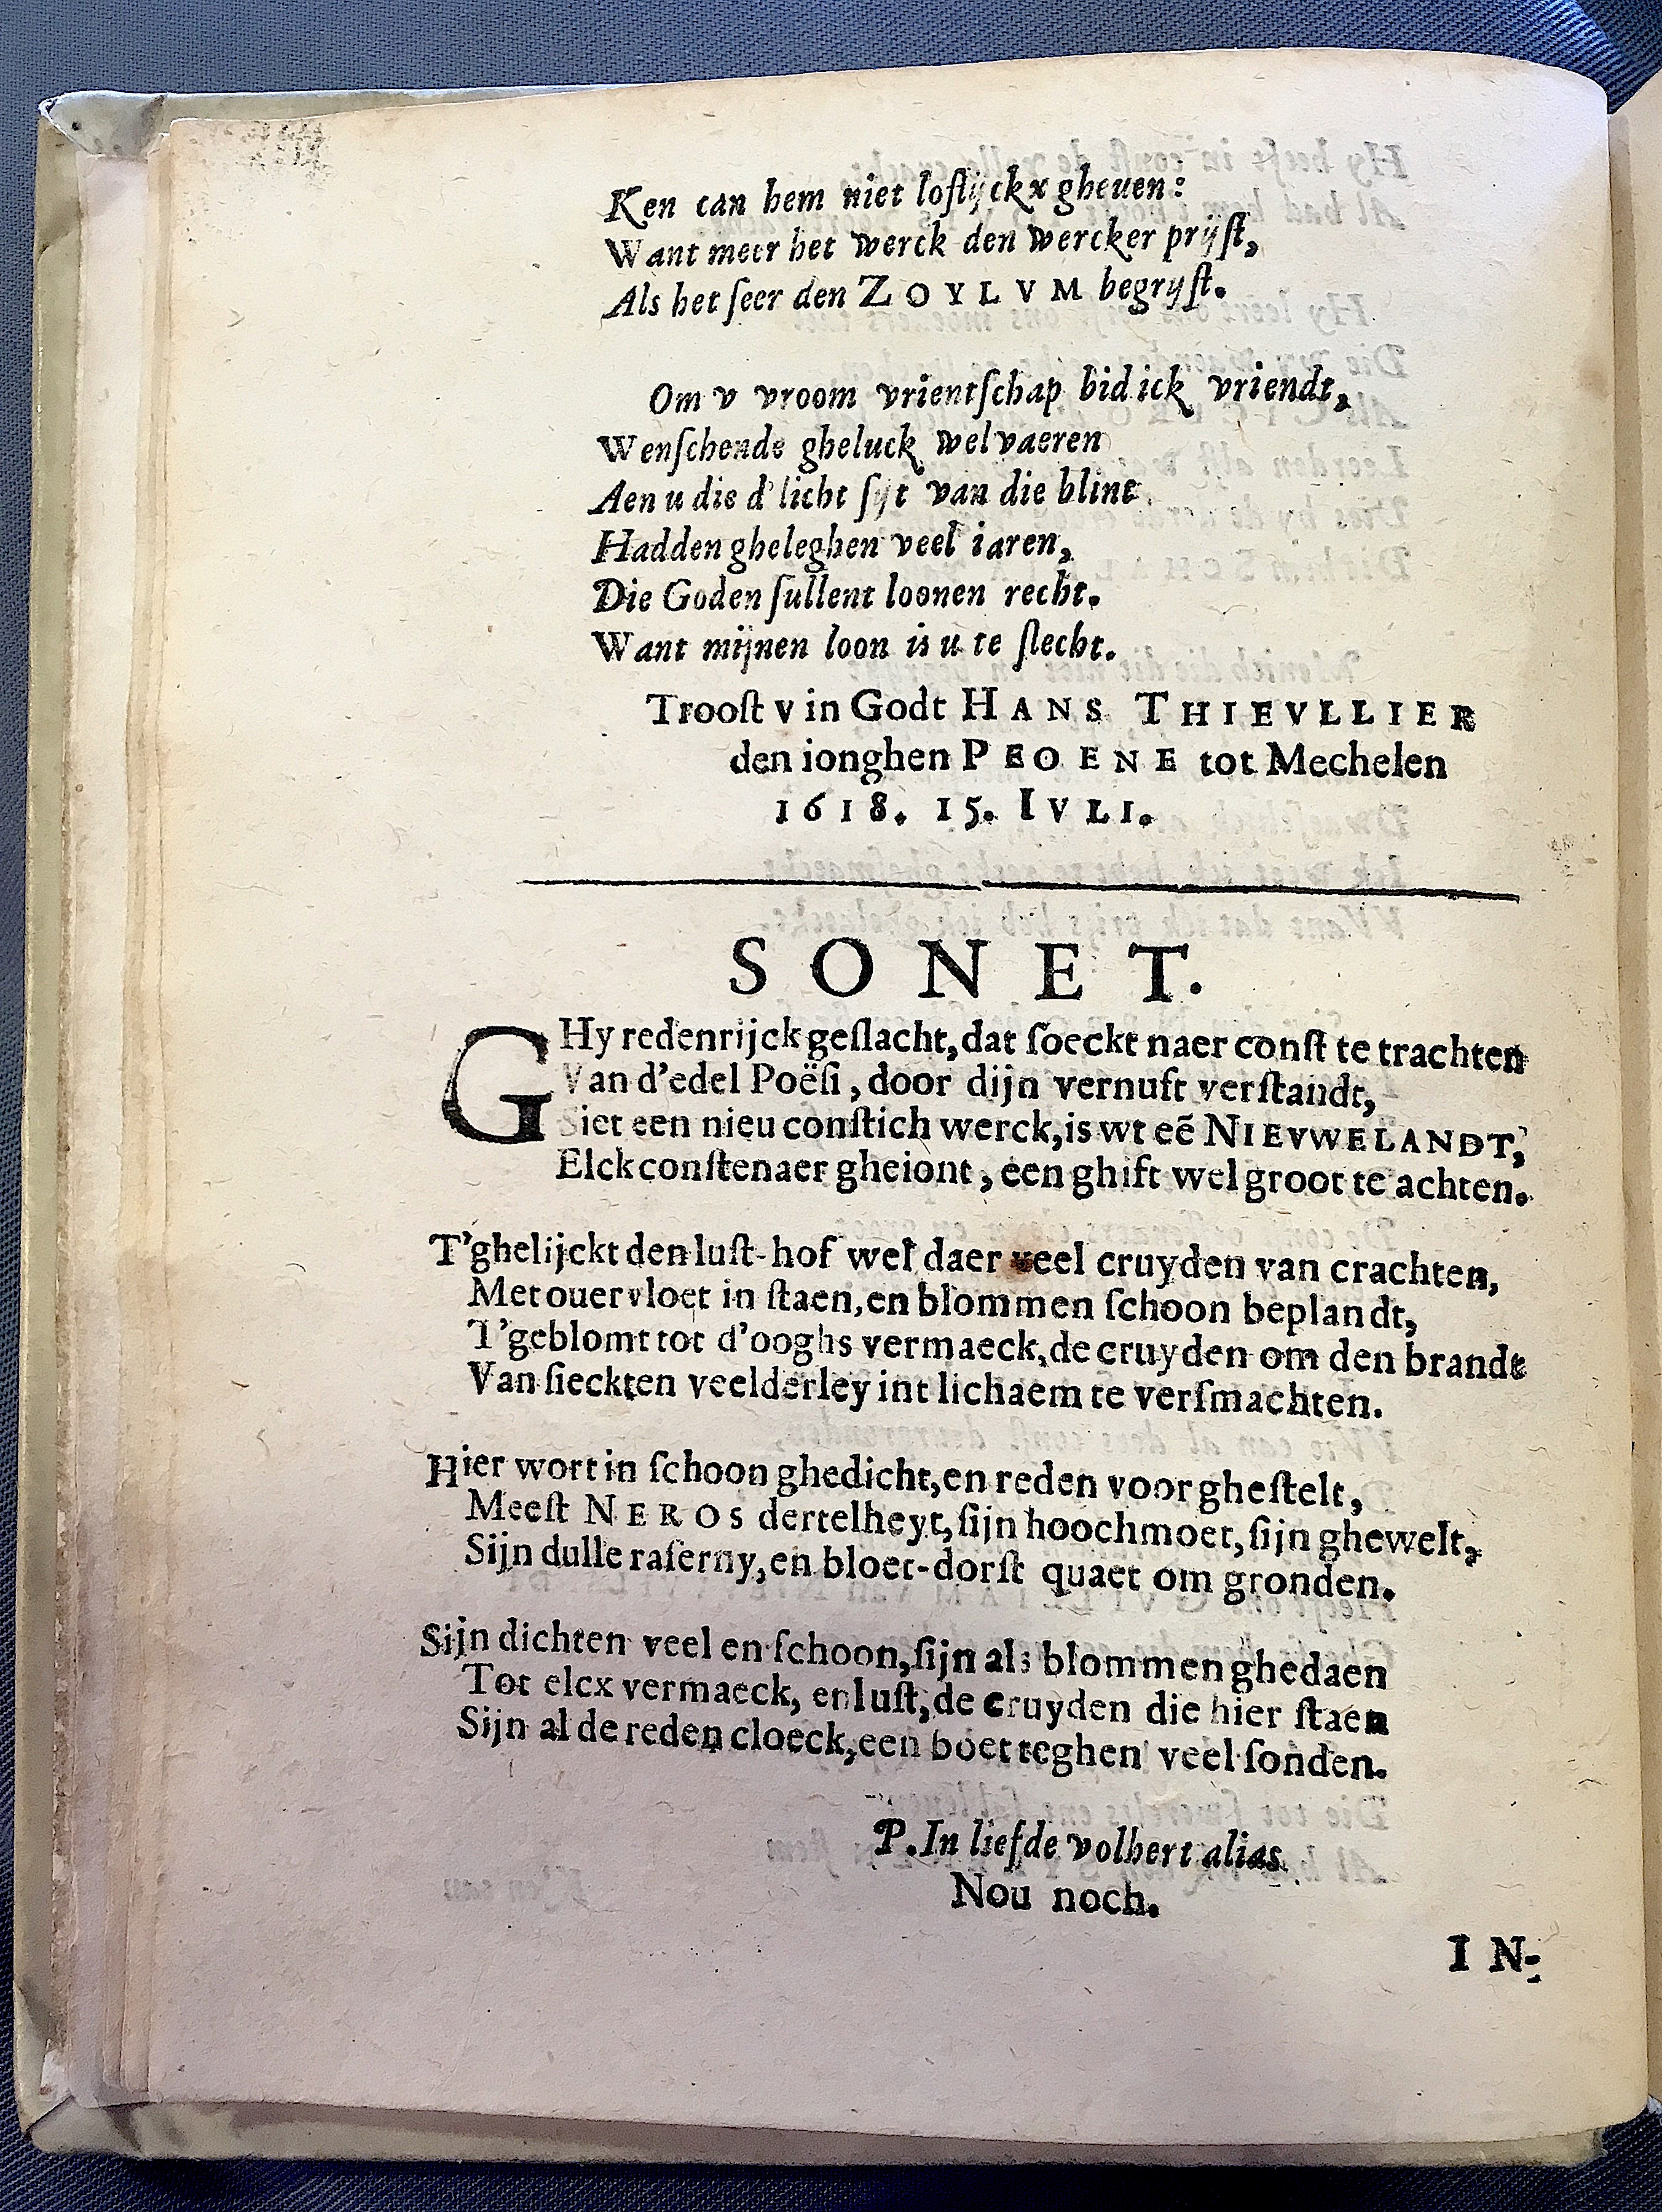 Ken can hem niet loflijckx gheuen:
Want meer het werck den wercker prijst,
Als het seer den ZOYLVM begrijst.
Om v vroom vrientschap bid ick vriendt,
Wenschende gheluck welvaeren
Aen u die d'licht sijt van die blint
Hadden gheleghen veel iaren,
Die Goden sullent loonen recht.
Want mijnen loon is u te slecht.
Troost v in Godt HANS THIEVLLIER
den ionghen PEOENE tot Mechelen
1618. 15. IVLI.
SONET.
GHy redenrijck geslacht, dat soeckt naer const te trachten
Van d'edel Poësi, door dijn vernuft verstandt,
Siet een nieu constich werck, is wt eē NIEVWELANDT,
Elck constenaer gheiont, een ghift wel groot te achten.
T'ghelijckt den lust-hof wel daer veel cruyden van crachten,
Met ouervloet in staen, en blommen schoon beplandt,
T'geblomt tot d'ooghs vermaeck, de cruyden om den brandt
Van sieckten veelderley int lichaem te versmachten.
Hier wort in schoon ghedicht, en reden voorghestelt,
Meest NEROS dertelheyt, sijn hoochmoet, sijn ghewelt,
Sijn dulle raserny, en bloet-dorst quaet om gronden.
Sijn dichten veel en schoon, sijn als blommen ghedaen
Tot elcx vermaeck, en lust, de cruyden die hier staen
Sijn al de reden cloeck, een boet teghen veel sonden.
P. In liefde volhert alias
Nou noch.
IN-